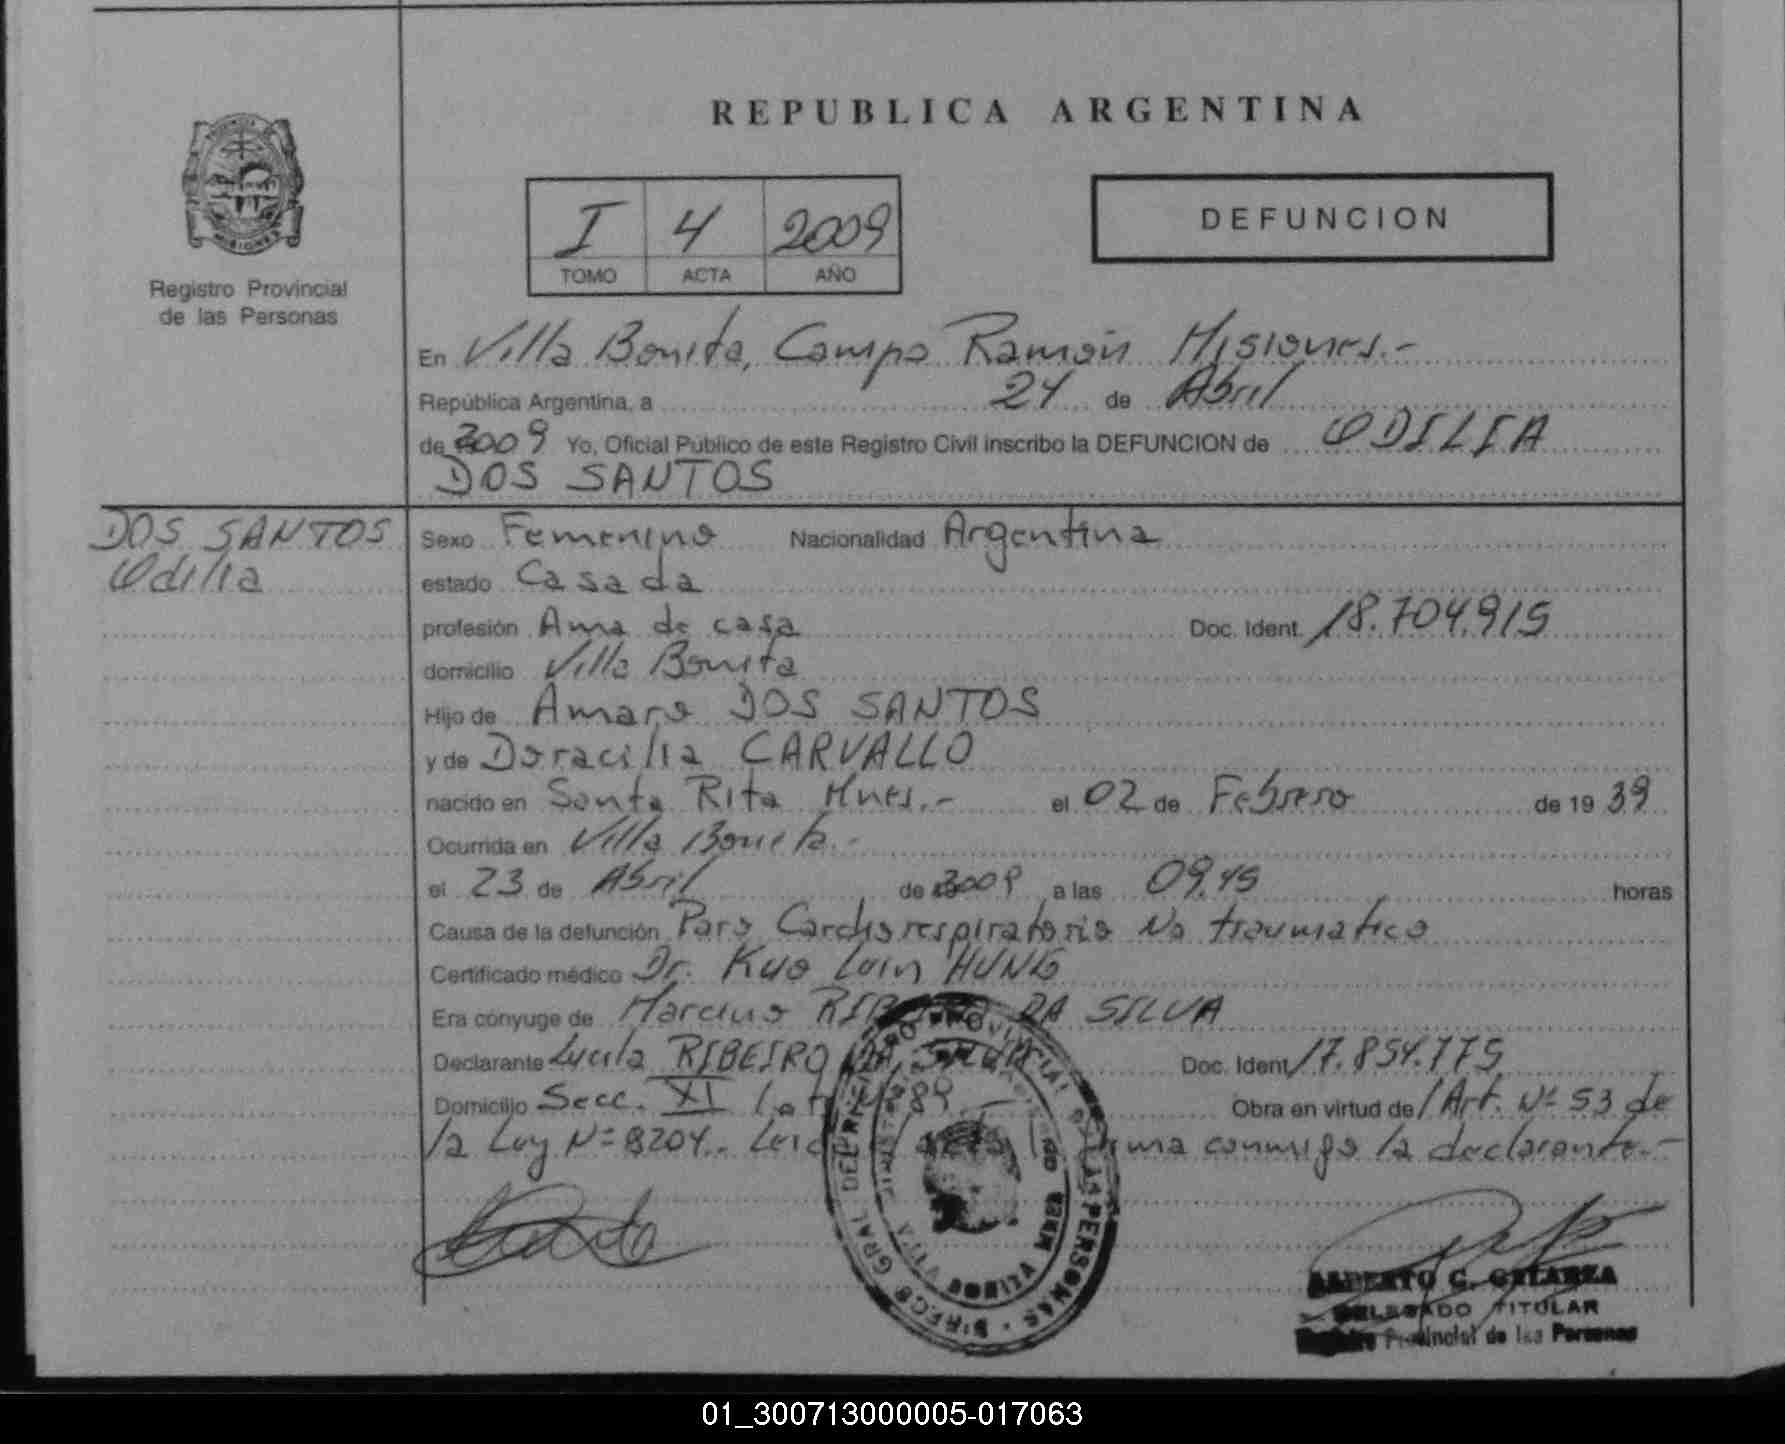 REPUBLICA ARGENTINA
I 4 2009
TOMO ACTA AÑO
DEFUNCION
MISIONES
Registro Provincial
de las Personas
En Villa Bonita, Campo Ramón Misiones.-
República Argentina, a 24 de Abril
de 2009 Yo, Oficial Público de este Registro Civil inscribo la DEFUNCION de ODILIA
DOS SANTOS
DOS SANTOS
Odilia
Sexo Femenino Nacionalidad Argentina
estado Casada
profesión Ama de casa Doc. Ident. 18.704.915
domicilio Villa Bonita
Hijo de Amaro DOS SANTOS
y de Doracilia CARVALLO
nacido en Santa Rita Mnes.- el 02 de Febrero de 19 39
Ocurrida en Villa Bonita.-
el 23 de Abril de 2009 a las 09.45 horas
Causa de la defunción Paro Cardiorespiratorio No traumatico
Certificado médico Dr. Kuo Lain HUNG
Era conyuge de Marcino DA SILVA
Declarante Lucila RIBEIRO DA SILVA Doc. Ident 17.854.775
Domicilio Secc. XI Lote Obra en virtud de l Art. Nº 53 de
la Ley Nº 8204.- firma conmigo la declarante.-
DELEGADO TITULAR
Registro Provincial de las Personas
01_300713000005-017063